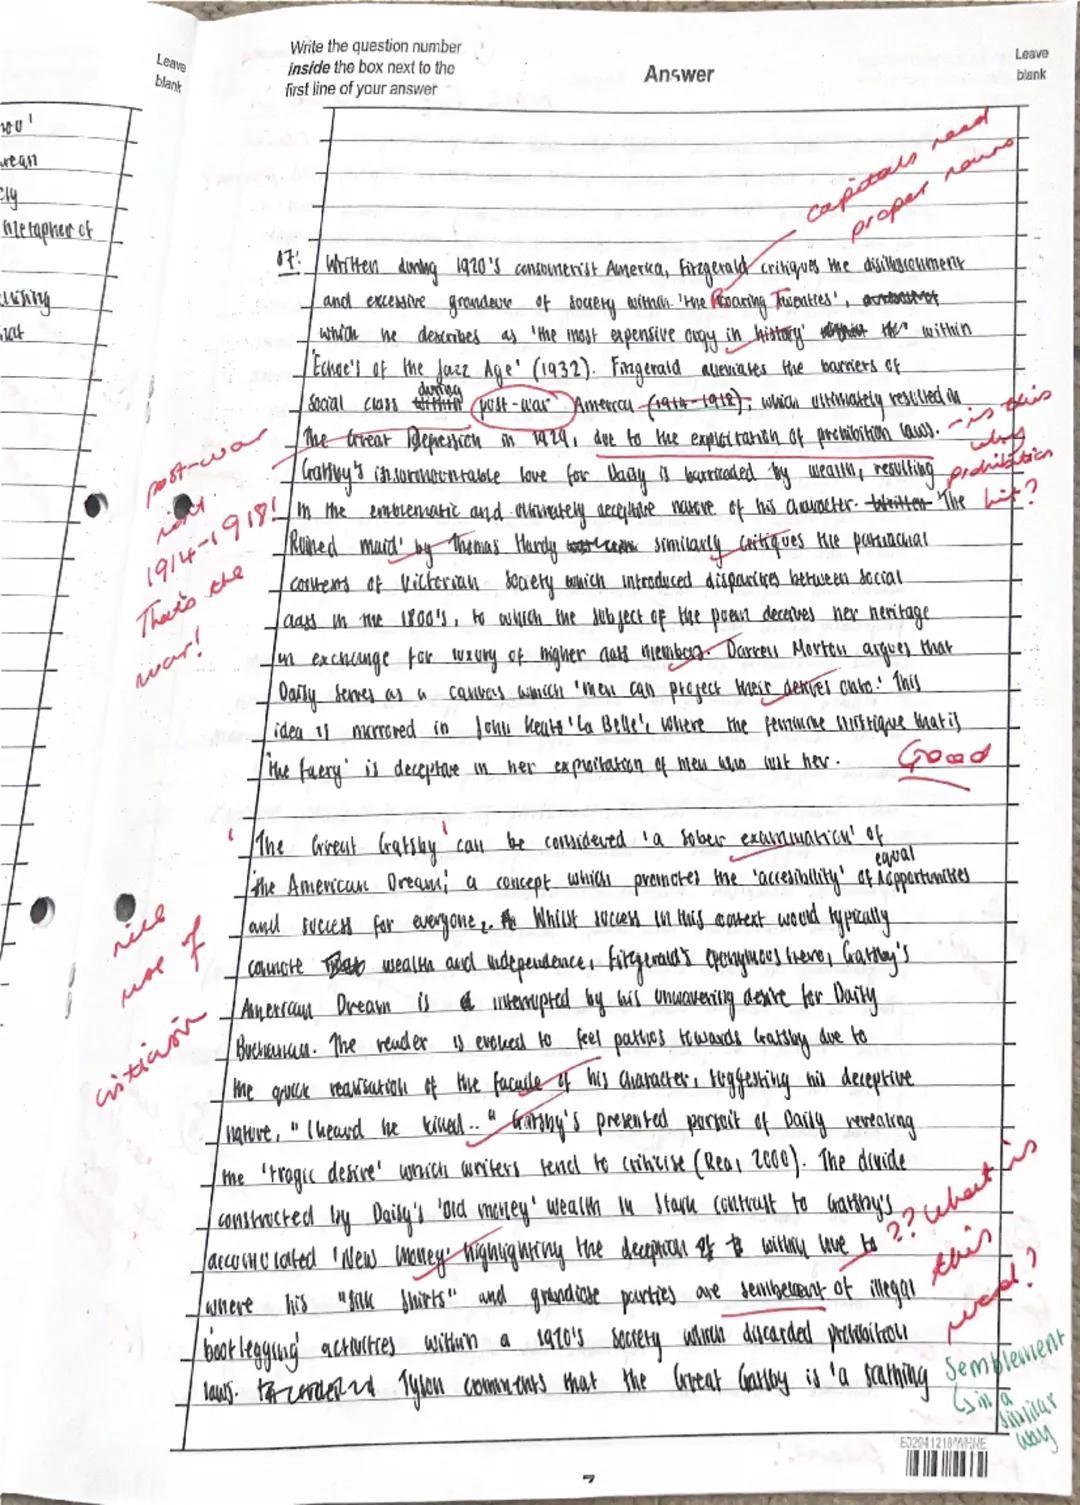 Leave
blank
Write the question number
inside the box next to the
first line of your answer
Answer
Leave
blank
metaphor of
capitals need
proper nouns
07. Written during 1920's consumerist America, Fitzgerald critiques the disillusionment
and excessive grandeur of society within 'the Roaring Twenties',
which he describes as 'the most expensive orgy in history' within
'Echoe's of the Jazz Age' (1932). Fitzgerald alleviates the barriers of
social class during post-war America (1914-1918), which ultimately resulted in
The Great Depression in 1929, due to the exploitation of prohibition laws.
- is this
why
prohibition
hit?
post-war
isn't
1914-1918!
That's the
war!
Gatsby's insurmountable love for Daisy is barricaded by wealth, resulting
in the emblematic and ultimately deceptive nature of his character. Written 'The
Ruined maid' by Thomas Hardy similarly critiques the patriarchal
contexts of Victorian society which introduced disparities between social
class in the 1800's, to which the subject of the poem deceives her heritage
in exchange for luxury of higher class members. Darrell Morton argues that
Daisy serves as a canvas which 'men can project their desires onto.' This
idea is mirrored in John Keats 'La Belle', where the feminine mystique that is
'the faery' is deceptive in her exploitation of men who lust her.
Good
'The Great Gatsby' can be considered 'a sober examination' of
the American Dream; a concept which promotes the 'accesibility' of equal opportunities
and success for everyone. Whilst success in this context would typically
connote wealth and independence, Fitzgerald's eponymous hero, Gatsby's
American Dream is interrupted by his unwavering desire for Daisy
Buchanan. The reader is evoked to feel pathos towards Gatsby due to
the quick realisation of the facade of his character, suggesting his deceptive
nature, "I heard he killed.." Gatsby's presented pursuit of Daisy revealing
the 'tragic desire' which writers tend to criticise (Real 2000). The divide
constructed by Daisy's 'old money' wealth in stark contrast to Gatsby's
accumulated 'New money' highlighting the deception of within love to
where his "silk shirts" and grandiose parties are semblement of illegal
'bootlegging' activities within a 1920's society which discarded prohibition
laws. Tyson comments that the Great Gatsby is 'a scathing
nice
use of
criticism
?? what is
this
word?
Semblement
↳ in a
similar
way
7